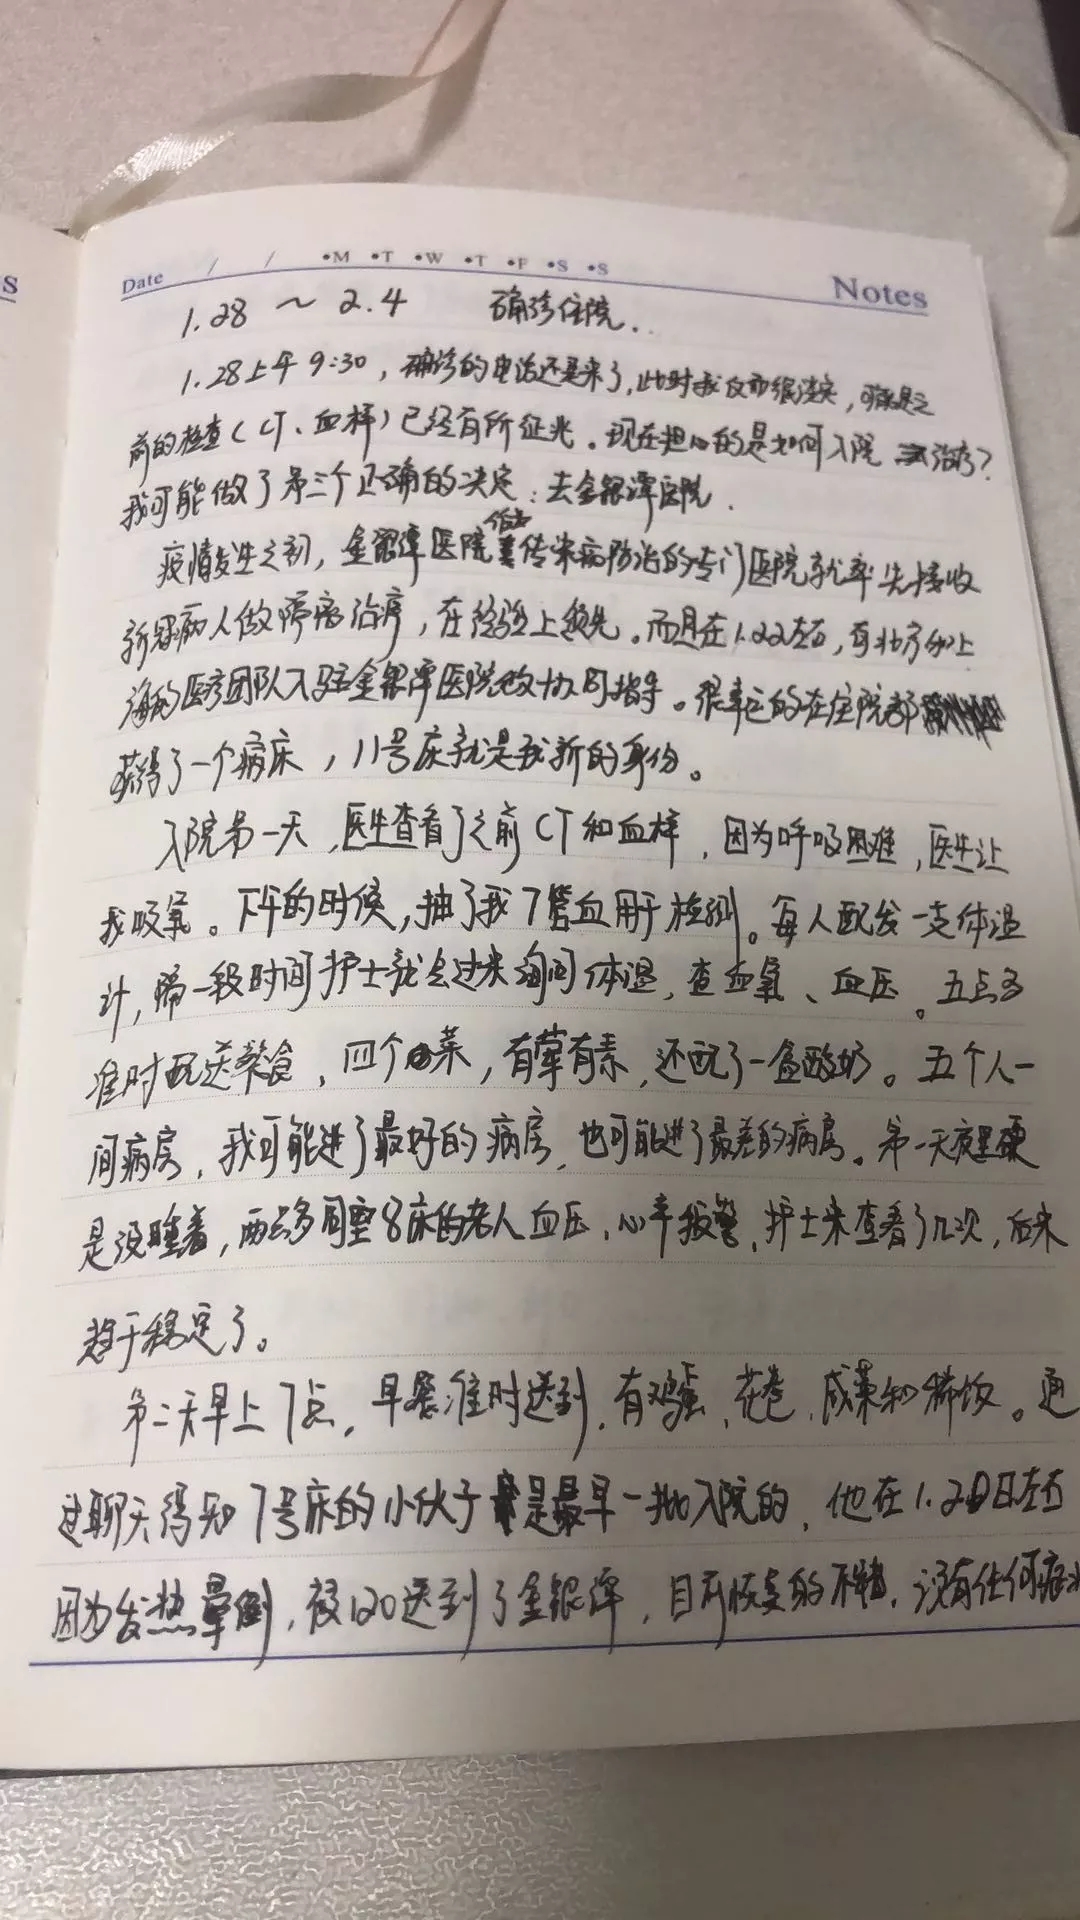 s
Date / / •M •T •W •T •F •S •S Notes
1.28 ~ 2.4 确诊住院.
1.28上午9:30，确诊的电话还是来了，此时我反而很淡定，可能是之
前的检查（CT、血样）已经有所征兆。现在担心的是如何入院治疗？
我可能做了第三个正确的决定：去金银潭医院.
疫情发生之初，金银潭医院作为传染病防治的专门医院就率先接收
新冠病人做隔离治疗，在经验上领先。而且在1.22左右，有北京和上
海的医疗团队入驻金银潭医院协同指导。很幸运的在住院部
获得了一个病床，11号床就是我新的身份。
入院第一天，医生查看了之前CT和血样，因为呼吸困难，医生让
我吸氧。下午的时候，抽了我7管血用于检测。每人配发一支体温
计，隔一段时间护士就会过来询问体温，查血氧、血压。五点多
准时配送餐食，四个菜，有荤有素，还配了一盒酸奶。五个人一
间病房，我可能进了最好的病房，也可能进了最差的病房。第一天夜里硬
是没睡着，两点多同室8床的老人血压、心率报警，护士来查看了几次，后来
趋于稳定了。
第二天早上7点，早餐准时送到，有鸡蛋、花卷、咸菜和稀饭。通
过聊天得知7号床的小伙子是最早一批入院的，他在1.20日左右
因为发热晕倒，被120送到了金银潭，目前恢复的不错，没有任何症状